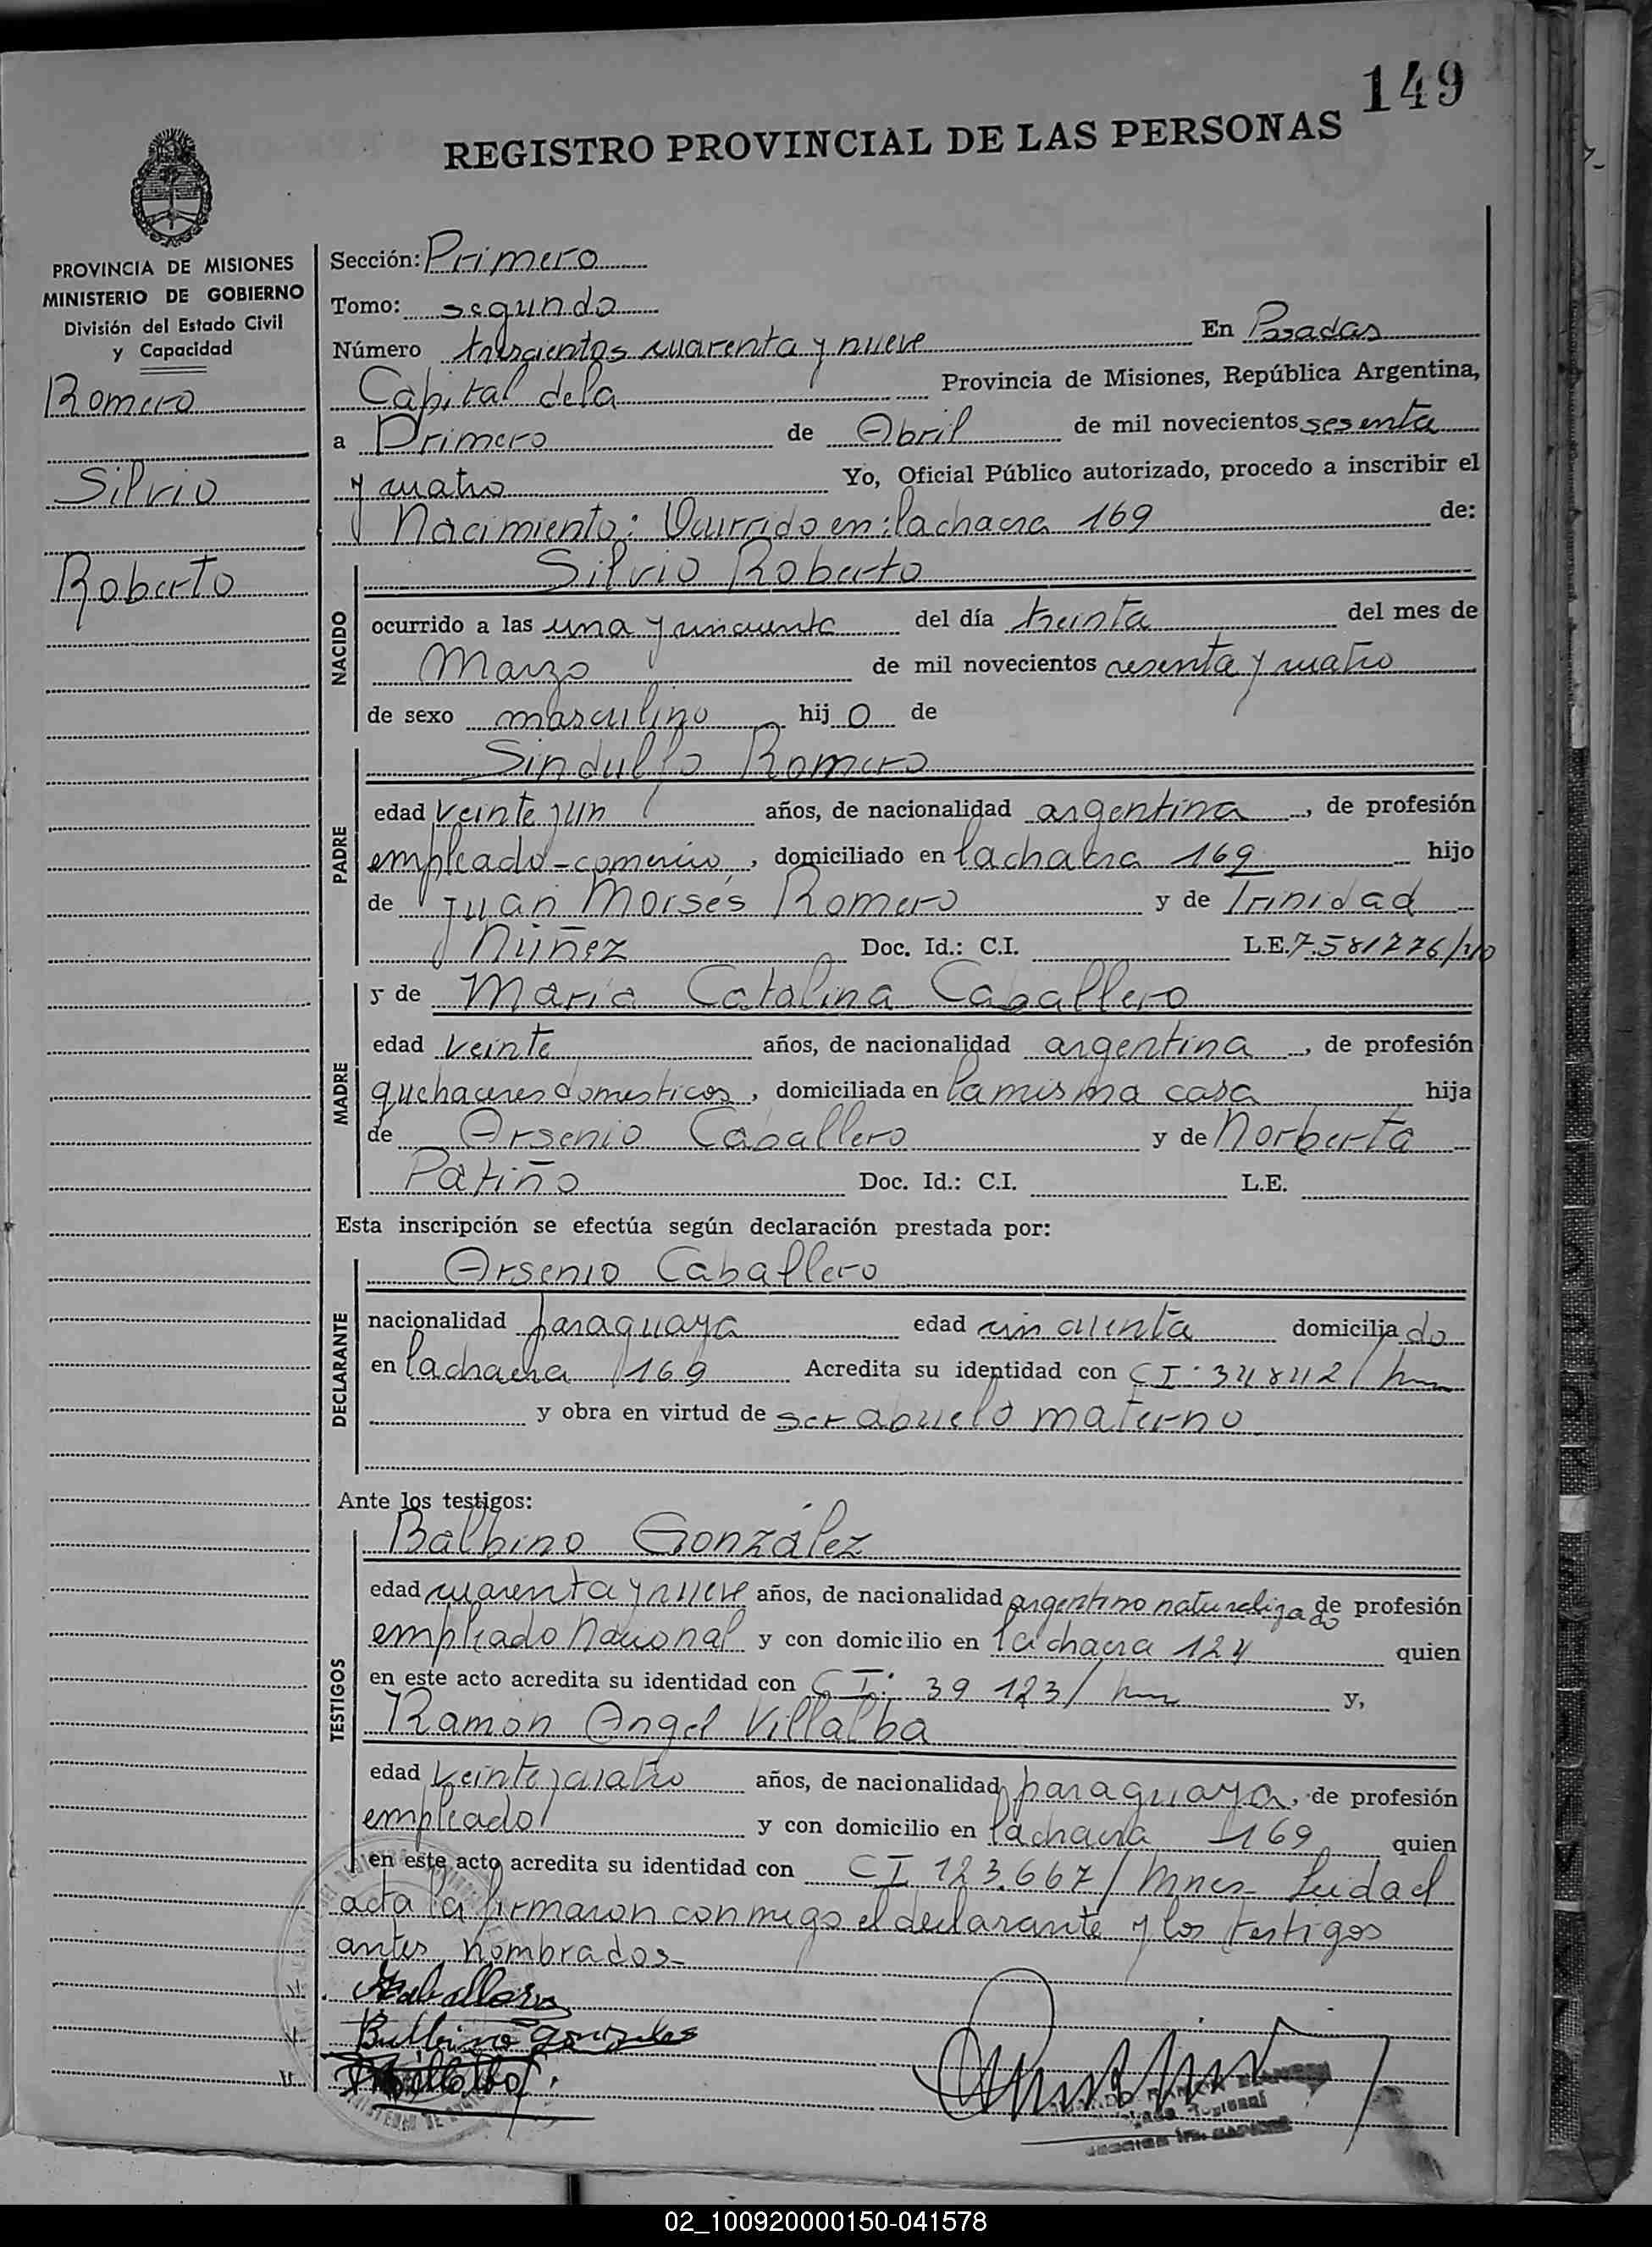 149
REGISTRO PROVINCIAL DE LAS PERSONAS
PROVINCIA DE MISIONES
MINISTERIO DE GOBIERNO
División del Estado Civil
y Capacidad
Romero
Silvio
Roberto
Sección: Primero
Tomo: segundo
Número trescientos cuarenta y nueve En Posadas
Capital de la Provincia de Misiones, República Argentina,
a Primero de Abril de mil novecientos sesenta
y cuatro Yo, Oficial Público autorizado, procedo a inscribir el
Nacimiento: Ocurrido en: la chacra 169 de:
NACIDO
Silvio Roberto
ocurrido a las una y cincuenta del día treinta del mes de
Marzo de mil novecientos sesenta y cuatro
de sexo masculino hijo de
PADRE
Sindulfo Romero
edad veinte y un años, de nacionalidad argentina, de profesión
empleado-comercio, domiciliado en la chacra 169 hijo
de Juan Morsés Romero y de Trinidad
Núñez Doc. Id.: C.I. L.E. 7.581776/
MADRE
y de María Catalina Caballero
edad veinte años, de nacionalidad argentina, de profesión
quehaceres domesticos, domiciliada en la misma casa hija
de Arsenio Caballero y de Norberta
Patiño Doc. Id.: C.I. L.E.
Esta inscripción se efectúa según declaración prestada por:
DECLARANTE
Arsenio Caballero
nacionalidad paraguaya edad cincuenta domiciliado
en la chacra 169 Acredita su identidad con CI. 34842/
y obra en virtud de ser abuelo materno
Ante los testigos:
TESTIGOS
Balbino González
edad cuarenta y nueve años, de nacionalidad argentino naturalizado de profesión
empleado nacional y con domicilio en la chacra 124 quien
en este acto acredita su identidad con CI: 39 123/ y,
Ramon Angel Villalba
edad veinte y cuatro años, de nacionalidad paraguaya, de profesión
empleado y con domicilio en la chacra 169 quien
en este acto acredita su identidad con CI 123.667/Mnes- Leida el
acta la firmaron conmigo el declarante y los testigos
antes nombrados-
ACaballero
Balbino Gonzales
Villalba
02_100920000150-041578